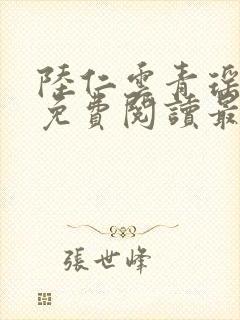 陸仁雲青瑶
免費閱讀最
張世峰